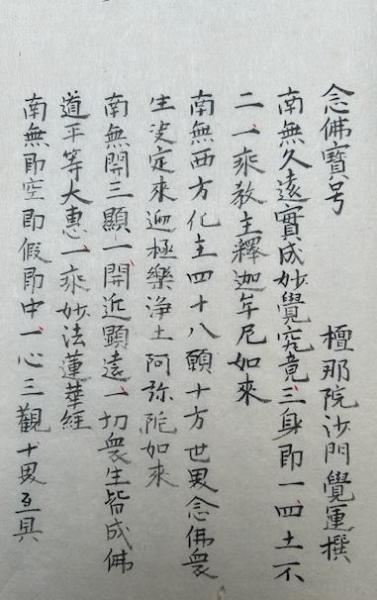 念佛寶号　　檀那院沙門覺運撰
南無久遠實成妙覺究竟三身即一四土不
二一乘教主釋迦牟尼如來
南無西方化主四十八願十方世界念佛衆
生决定來迎極樂淨土阿弥陀如來
南無開三顯一開近顯遠一切衆生皆成佛
道平等大惠一乘妙法蓮華經
南無即空即假即中一心三觀十界互具